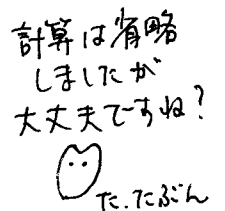 計算は省略
しましたが
大丈夫ですね?
た.たぶん